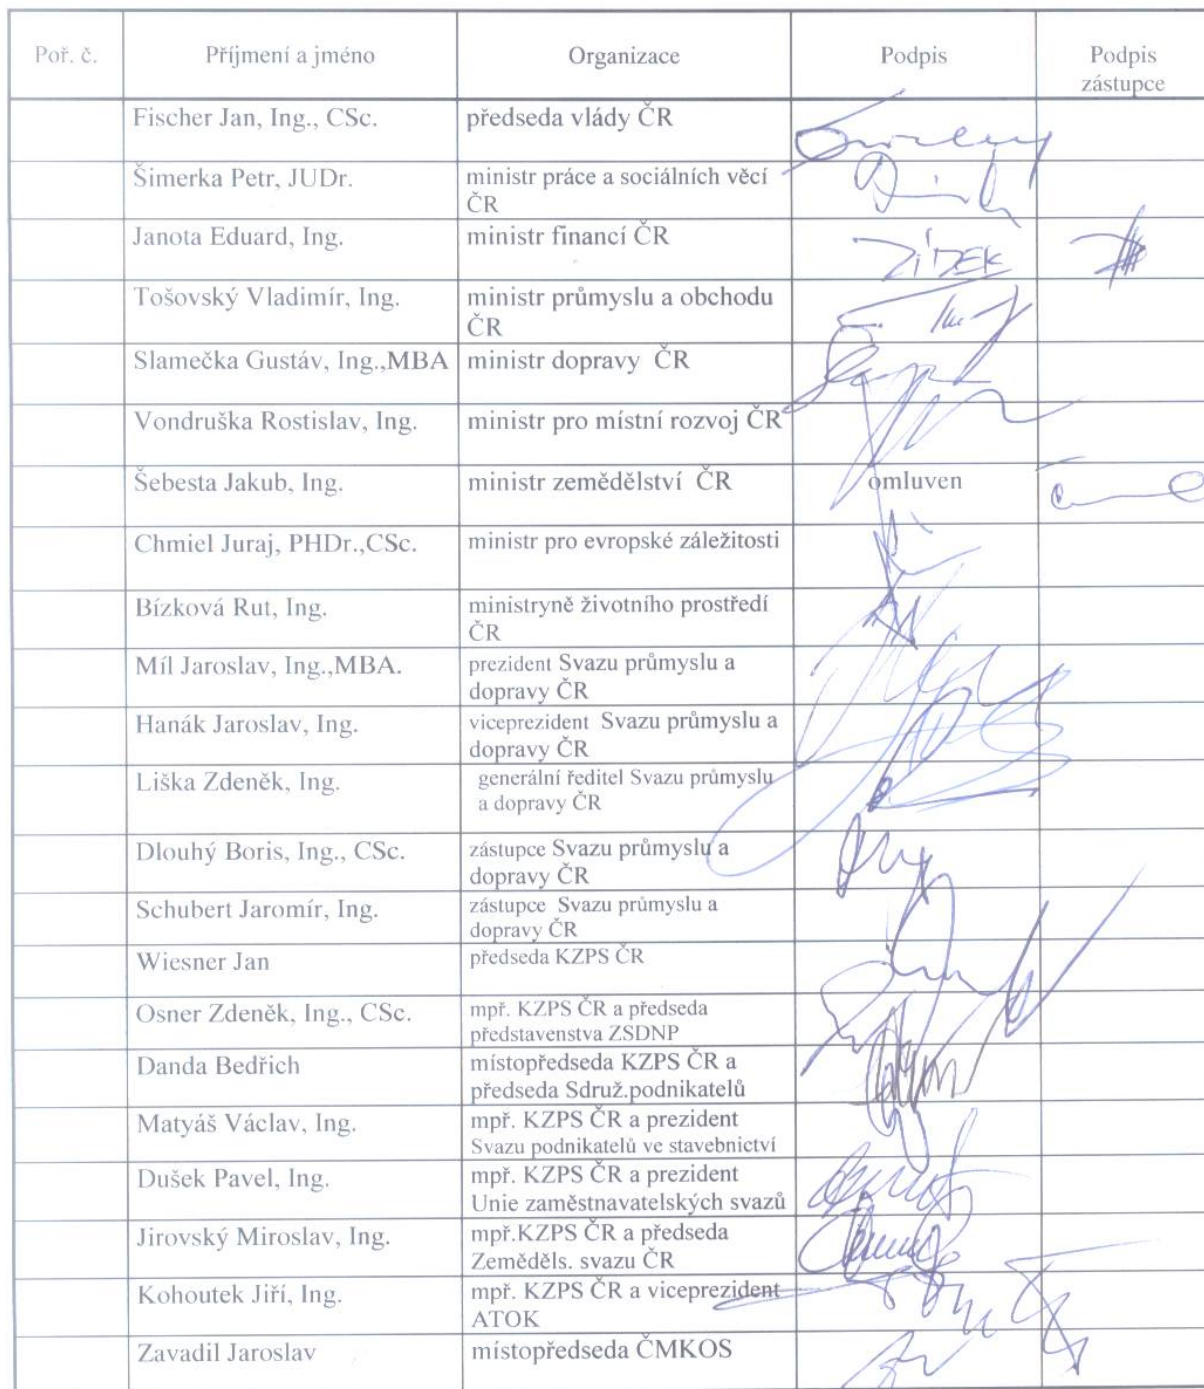 Poř. č.
Příjmení a jméno
Organizace
Podpis
Podpis
zástupce
Fischer Jan, Ing., CSc.
předseda vlády ČR
Šimerka Petr, JUDr.
ministr práce a sociálních věcí
ČR
Janota Eduard, Ing.
ministr financí ČR
ZÍDEK
Tošovský Vladimír, Ing.
ministr průmyslu a obchodu
ČR
Slamečka Gustáv, Ing.,MBA
ministr dopravy ČR
Vondruška Rostislav, Ing.
ministr pro místní rozvoj ČR
Šebesta Jakub, Ing.
ministr zemědělství ČR
omluven
Chmiel Juraj, PHDr.,CSc.
ministr pro evropské záležitosti
Bízková Rut, Ing.
ministryně životního prostředí
ČR
Míl Jaroslav, Ing.,MBA.
prezident Svazu průmyslu a
dopravy ČR
Hanák Jaroslav, Ing.
viceprezident Svazu průmyslu a
dopravy ČR
Liška Zdeněk, Ing.
generální ředitel Svazu průmyslu
a dopravy ČR
Dlouhý Boris, Ing., CSc.
zástupce Svazu průmyslu a
dopravy ČR
Schubert Jaromír, Ing.
zástupce Svazu průmyslu a
dopravy ČR
Wiesner Jan
předseda KZPS ČR
Osner Zdeněk, Ing., CSc.
mpř. KZPS ČR a předseda
představenstva ZSDNP
Danda Bedřich
místopředseda KZPS ČR a
předseda Sdruž.podnikatelů
Matyáš Václav, Ing.
mpř. KZPS ČR a prezident
Svazu podnikatelů ve stavebnictví
Dušek Pavel, Ing.
mpř. KZPS ČR a prezident
Unie zaměstnavatelských svazů
Jirovský Miroslav, Ing.
mpř.KZPS ČR a předseda
Zeměděls. svazu ČR
Kohoutek Jiří, Ing.
mpř. KZPS ČR a viceprezident
ATOK
Zavadil Jaroslav
místopředseda ČMKOS